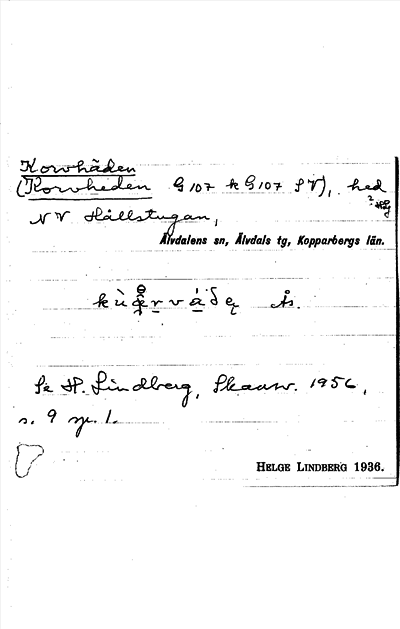 Korvhäden
(Korvheden G 107 k G 107 SV), hed
NV Hållstugan,
Älvdalens sn, Älvdals tg, Kopparbergs län.
Ås.
Se H. Lindberg, Skansv. 1956,
s. 9 sp. 1.
HELGE LINDBERG 1936.